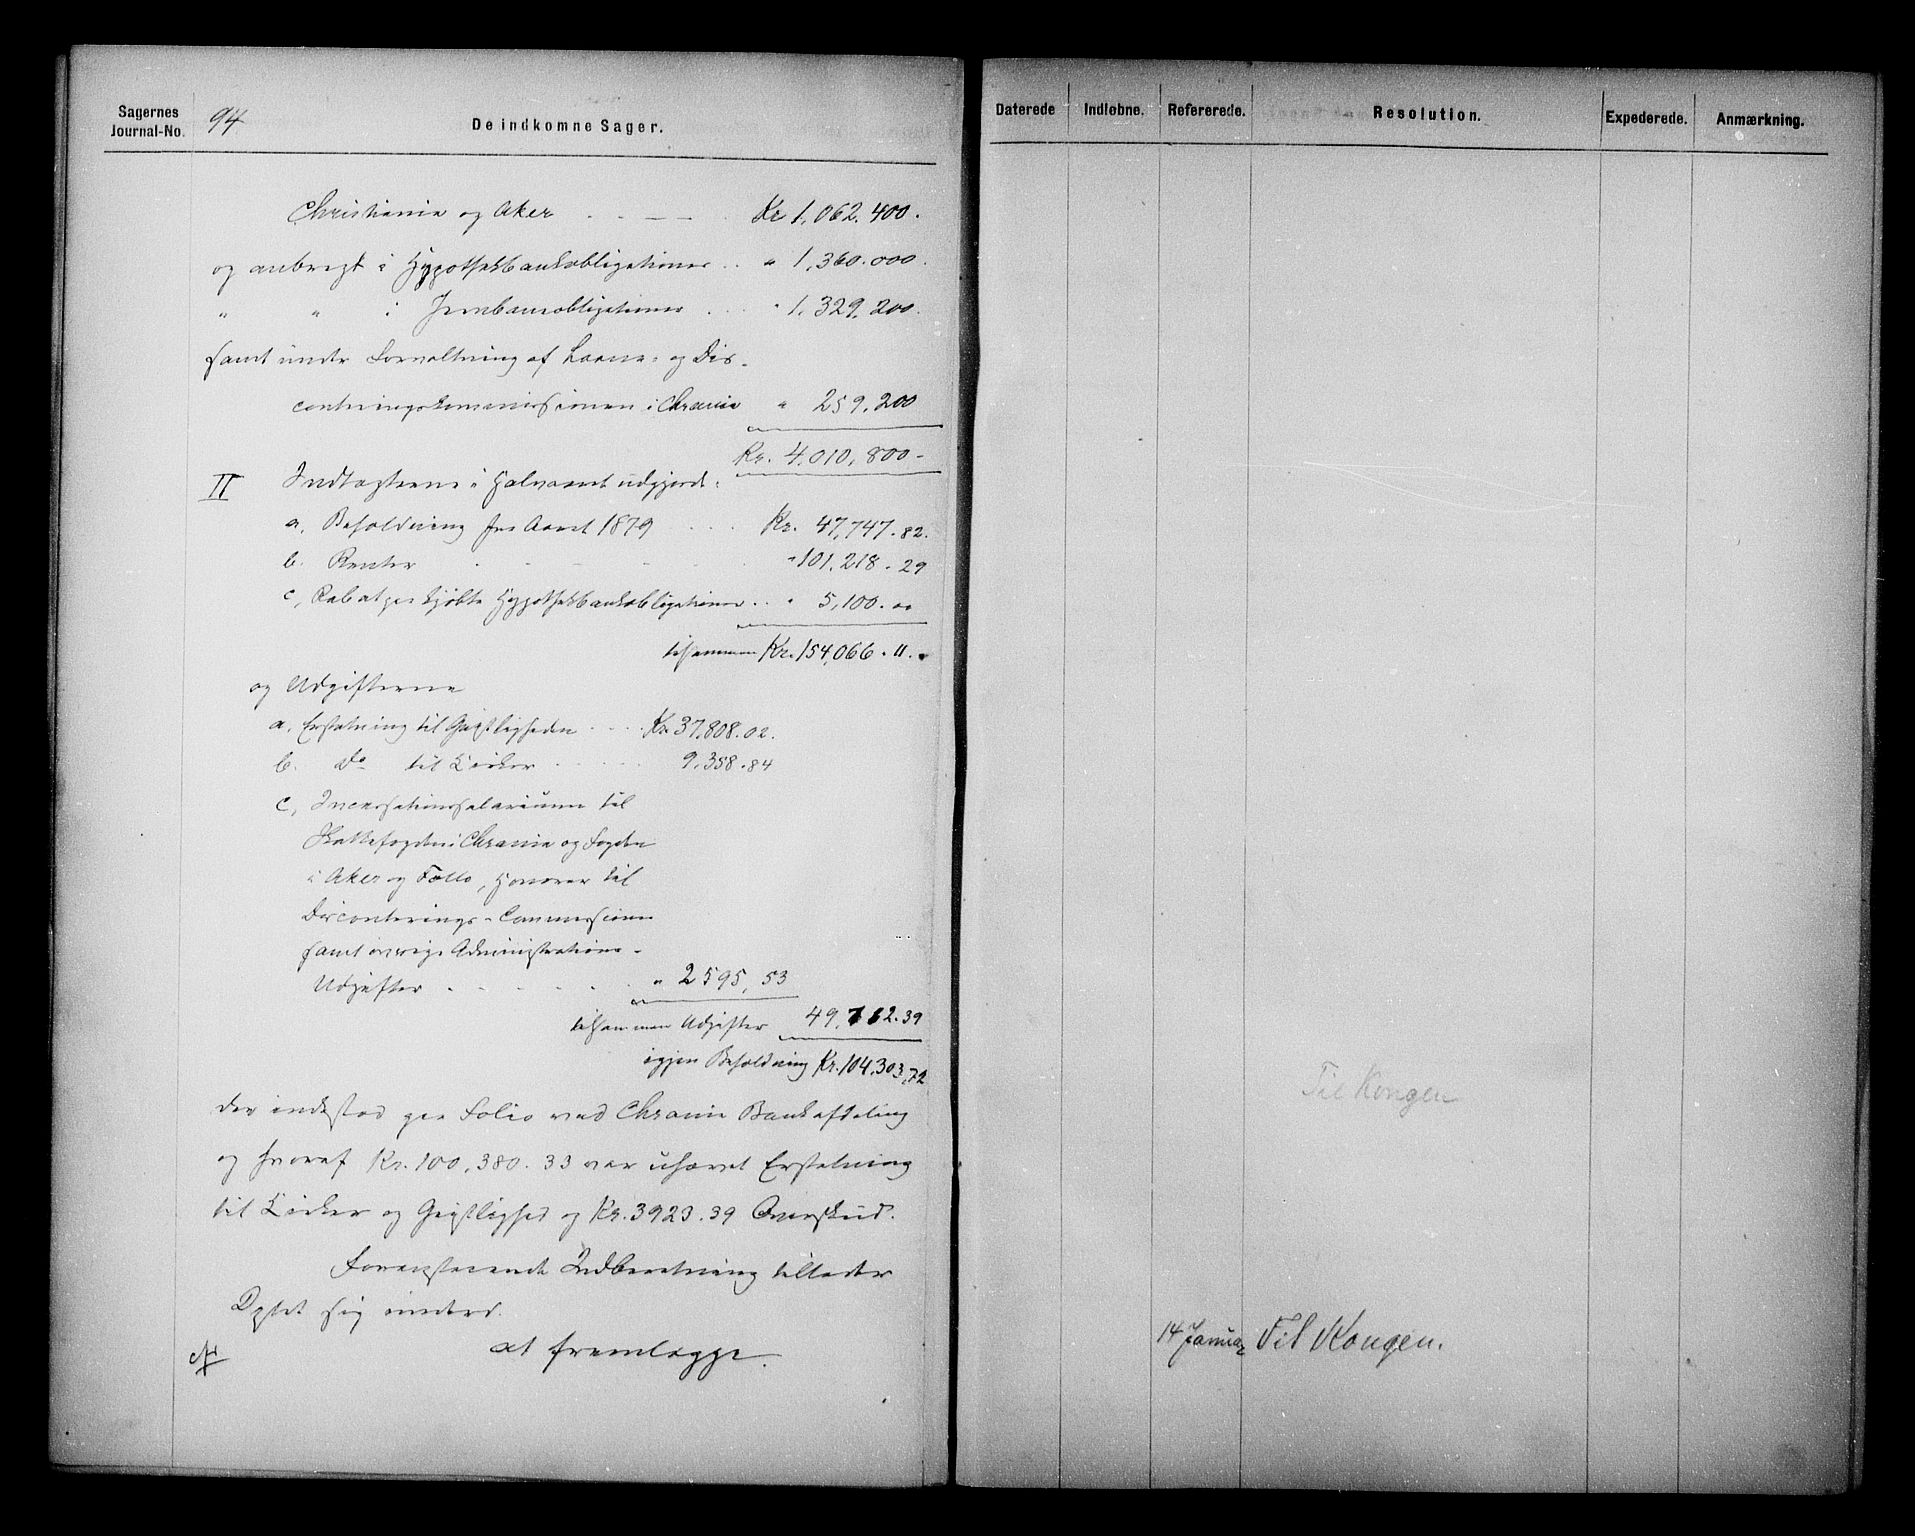 Sagernes
Journal-No.
94
De indkomne Sager.
Christiania og Aker . . — — . Kr 1,062.400.
og anbragt i Hypothekbankobligationer . . " 1,360.000.
" " i Jernbaneobligationer . . . " 1,329,200.
samt under Forvaltning af Laane- og Dis-
conteringskommissionen i Chrania " 259,200
Kr. 4,010,800-
II Indtægterne i Halvaaret udgjorde:
a. Beholdning fra Aaret 1879 . . . . Kr. 47,747.82.
b. Renter . - - - . . "101,218.29
c, Rabat paa kjøbte Hypothekbankobligationer . . " 5,100.00
tilsammen Kr. 154,066.11.
og Udgifterne
a. Erstatning til Geistligheden . . . . Kr. 37,808.02.
b. do til Kirker . . . . . 9,358.84
c, Incassationssalarium til
Skattefogden i Chrania og Fogden
i Aker og Follo, Honorar til
Disconterings-Commissionen
samt øvrige Administrations-
Udgifter . . . . . . " 2595,53
tilsammen Udgifter 49,762.39
igjen Beholdning Kr. 104,303,72
der indestod paa Folio ved Chrania Bankafdeling
og hvoraf Kr. 100,380.33 var uhævet Erstatning
til Kirker og Geistlighed og Kr. 3923.39 Overskud.
Foranstaaende Indberetning tillader
Dptet sig underd.
at fremlægge.
Daterede
Indløbne.
Refererede.
Resolution.
Expederede.
Anmærkning.
Til Kongen
14 Januar Til Kongen.